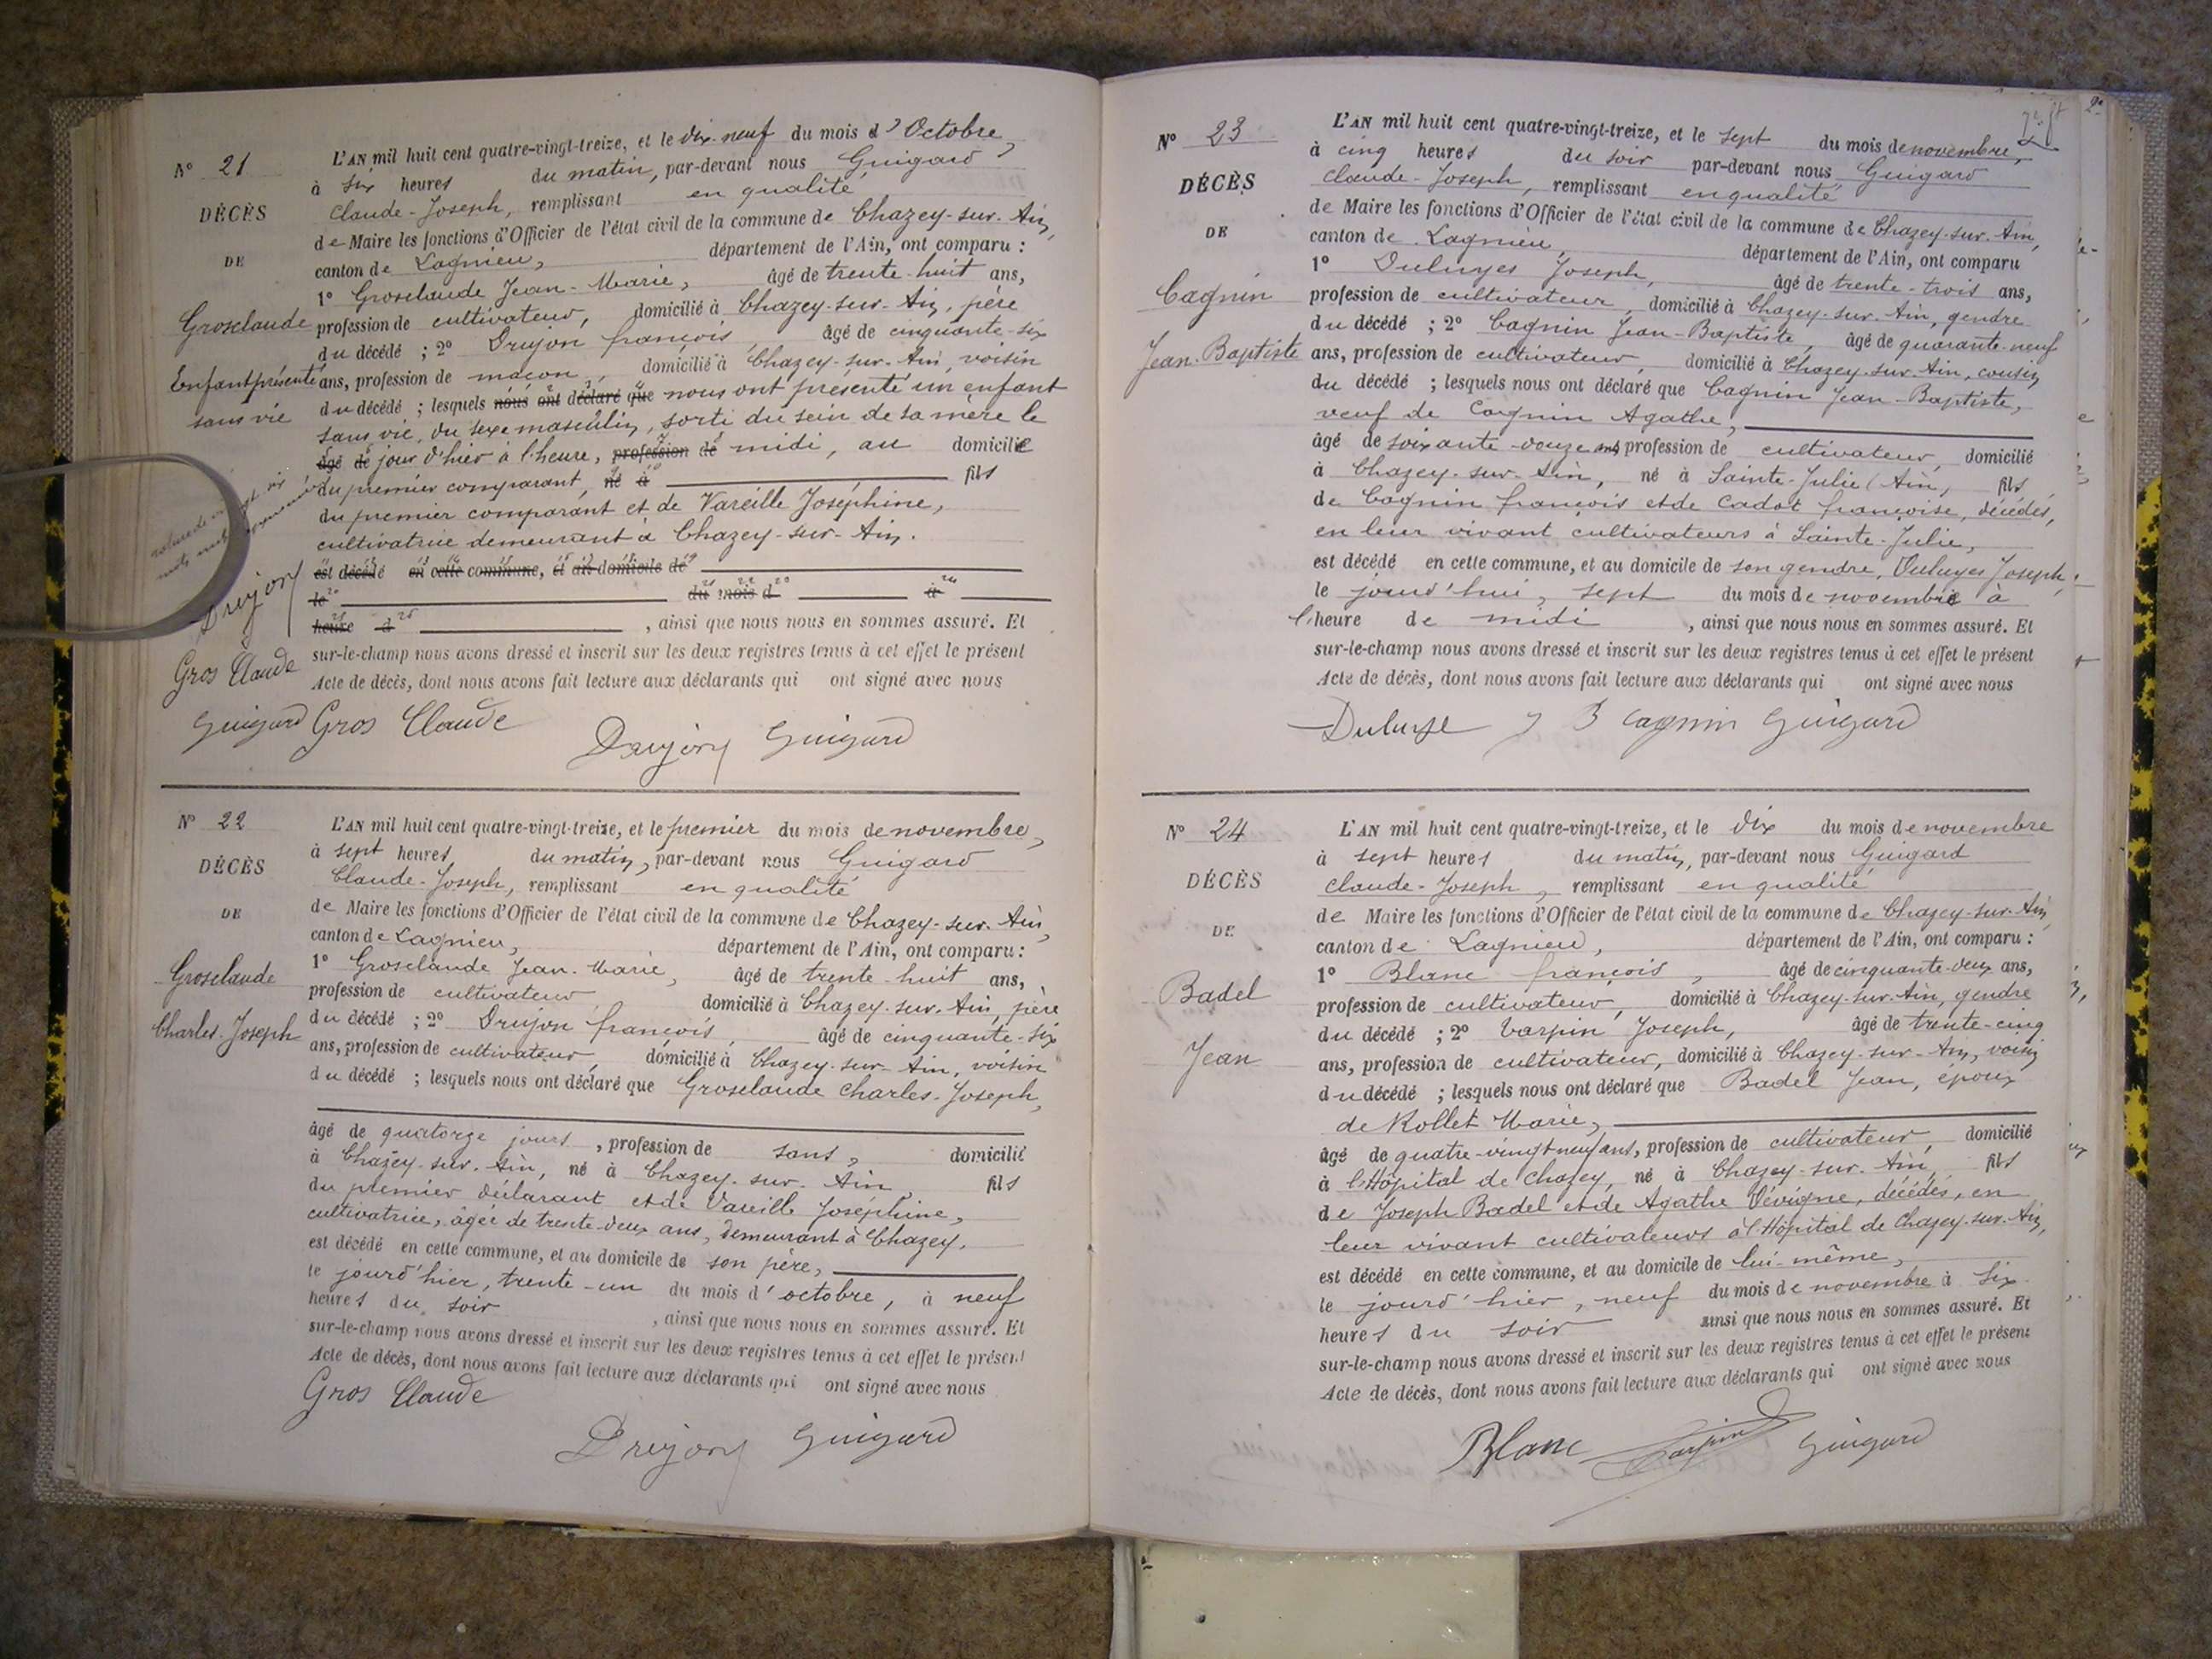 N° 21
DÉCÈS
DE
Groselaude
Enfant présenté
sans vie
Drujon
Gros Claude
Guigard
L'AN mil huit cent quatre-vingt-treize, et le dix-neuf du mois d'Octobre,
à six heures du matin, par-devant nous Guigard
Claude-Joseph, remplissant en qualité
de Maire les fonctions d'Officier de l'état civil de la commune de Chazey-sur-Ain,
canton de Lagnieu, département de l'Ain, ont comparu :
1° Groselaude Jean-Marie, âgé de trente-huit ans,
profession de cultivateur, domicilié à Chazey-sur-Ain, père
du décédé ; 2° Drujon françois, âgé de cinquante-six
ans, profession de maçon, domicilié à Chazey-sur-Ain, voisin
du décédé ; lesquels nous ont déclaré que nous ont présenté un enfant
sans vie, du sexe masculin, sorti du sein de sa mère le
âgé de jour d'hier à l'heure, profession de midi, au domicile
du premier comparant, né à fils
du premier comparant et de Vareille Joséphine,
cultivatrice demeurant à Chazey-sur-Ain.
est décédé en cette commune, et au domicile de
le du mois d à
heure d , ainsi que nous nous en sommes assuré. Et
sur-le-champ nous avons dressé et inscrit sur les deux registres tenus à cet effet le présent
Acte de décès, dont nous avons fait lecture aux déclarants qui ont signé avec nous
Gros Claude Drujon Guigard
N° 22
DÉCÈS
DE
Groselaude
Charles-Joseph
L'AN mil huit cent quatre-vingt-treize, et le premier du mois de novembre,
à sept heures du matin, par-devant nous Guigard
Claude-Joseph, remplissant en qualité
de Maire les fonctions d'Officier de l'état civil de la commune de Chazey-sur-Ain,
canton de Lagnieu, département de l'Ain, ont comparu :
1° Groselaude Jean-Marie, âgé de trente-huit ans,
profession de cultivateur domicilié à Chazey-sur-Ain, père
du décédé ; 2° Drujon françois, âgé de cinquante-six
ans, profession de cultivateur, domicilié à Chazey-sur-Ain, voisin
du décédé ; lesquels nous ont déclaré que Groselaude Charles-Joseph,
âgé de quatorze jours, profession de sans, domicilié
à Chazey-sur-Ain, né à Chazey-sur-Ain fils
du premier déclarant et de Vareille Joséphine,
cultivatrice, âgée de trente-deux ans, demeurant à Chazey,
est décédé en cette commune, et au domicile de son père,
le jourd'hier, trente-un du mois d'octobre, à neuf
heures du soir , ainsi que nous nous en sommes assuré. Et
sur-le-champ nous avons dressé et inscrit sur les deux registres tenus à cet effet le présent
Acte de décès, dont nous avons fait lecture aux déclarants qui ont signé avec nous
Gros Claude
Drujon Guigard
N° 23
DÉCÈS
DE
Cagnin
Jean-Baptiste
L'AN mil huit cent quatre-vingt-treize, et le sept du mois de novembre,
à cinq heures du soir par-devant nous Guigard
Claude-Joseph, remplissant en qualité
de Maire les fonctions d'Officier de l'état civil de la commune de Chazey-sur-Ain,
canton de Lagnieu, département de l'Ain, ont comparu
1° Duluyes Joseph, âgé de trente-trois ans,
profession de cultivateur, domicilié à Chazey-sur-Ain, gendre
du décédé ; 2° Cagnin Jean-Baptiste, âgé de quarante-neuf
ans, profession de cultivateur, domicilié à Chazey-sur-Ain, cousin
du décédé ; lesquels nous ont déclaré que Cagnin Jean-Baptiste,
veuf de Cagnin Agathe,
âgé de soixante-douze ans, profession de cultivateur, domicilié
à Chazey-sur-Ain, né à Sainte-Julie (Ain, fils
de Cagnin françois et de Cadot françoise, décédés,
en leur vivant cultivateurs à Sainte-Julie,
est décédé en cette commune, et au domicile de son gendre, Duluyes Joseph,
le jourd'hui, sept du mois de novembre à
l'heure de midi , ainsi que nous nous en sommes assuré. Et
sur-le-champ nous avons dressé et inscrit sur les deux registres tenus à cet effet le présent
Acte de décès, dont nous avons fait lecture aux déclarants qui ont signé avec nous
J B Cagnin Guigard
N° 24
DÉCÈS
DE
Badel
Jean
L'AN mil huit cent quatre-vingt-treize, et le dix du mois de novembre
à sept heures du matin, par-devant nous Guigard
Claude-Joseph, remplissant en qualité
de Maire les fonctions d'Officier de l'état civil de la commune de Chazey-sur-Ain,
canton de Lagnieu, département de l'Ain, ont comparu :
1° Blanc françois, âgé de cinquante-deux ans,
profession de cultivateur, domicilié à Chazey-sur-Ain, gendre
du décédé ; 2° Varpin Joseph, âgé de trente-cinq
ans, profession de cultivateur, domicilié à Chazey-sur-Ain, voisin
du décédé ; lesquels nous ont déclaré que Badel Jean, époux
de Rollet Marie,
âgé de quatre-vingt-neuf ans, profession de cultivateur, domicilié
à l'Hôpital de Chazey, né à Chazey-sur-Ain, fils
de Joseph Badel et de Agathe Dévigne, décédés, en
leur vivant cultivateurs à l'Hôpital de Chazey-sur-Ain,
est décédé en cette commune, et au domicile de lui-même,
le jourd'hier, neuf du mois de novembre à six
heures du soir ainsi que nous nous en sommes assuré. Et
sur-le-champ nous avons dressé et inscrit sur les deux registres tenus à cet effet le présent
Acte de décès, dont nous avons fait lecture aux déclarants qui ont signé avec nous
Blanc Varpin Guigard